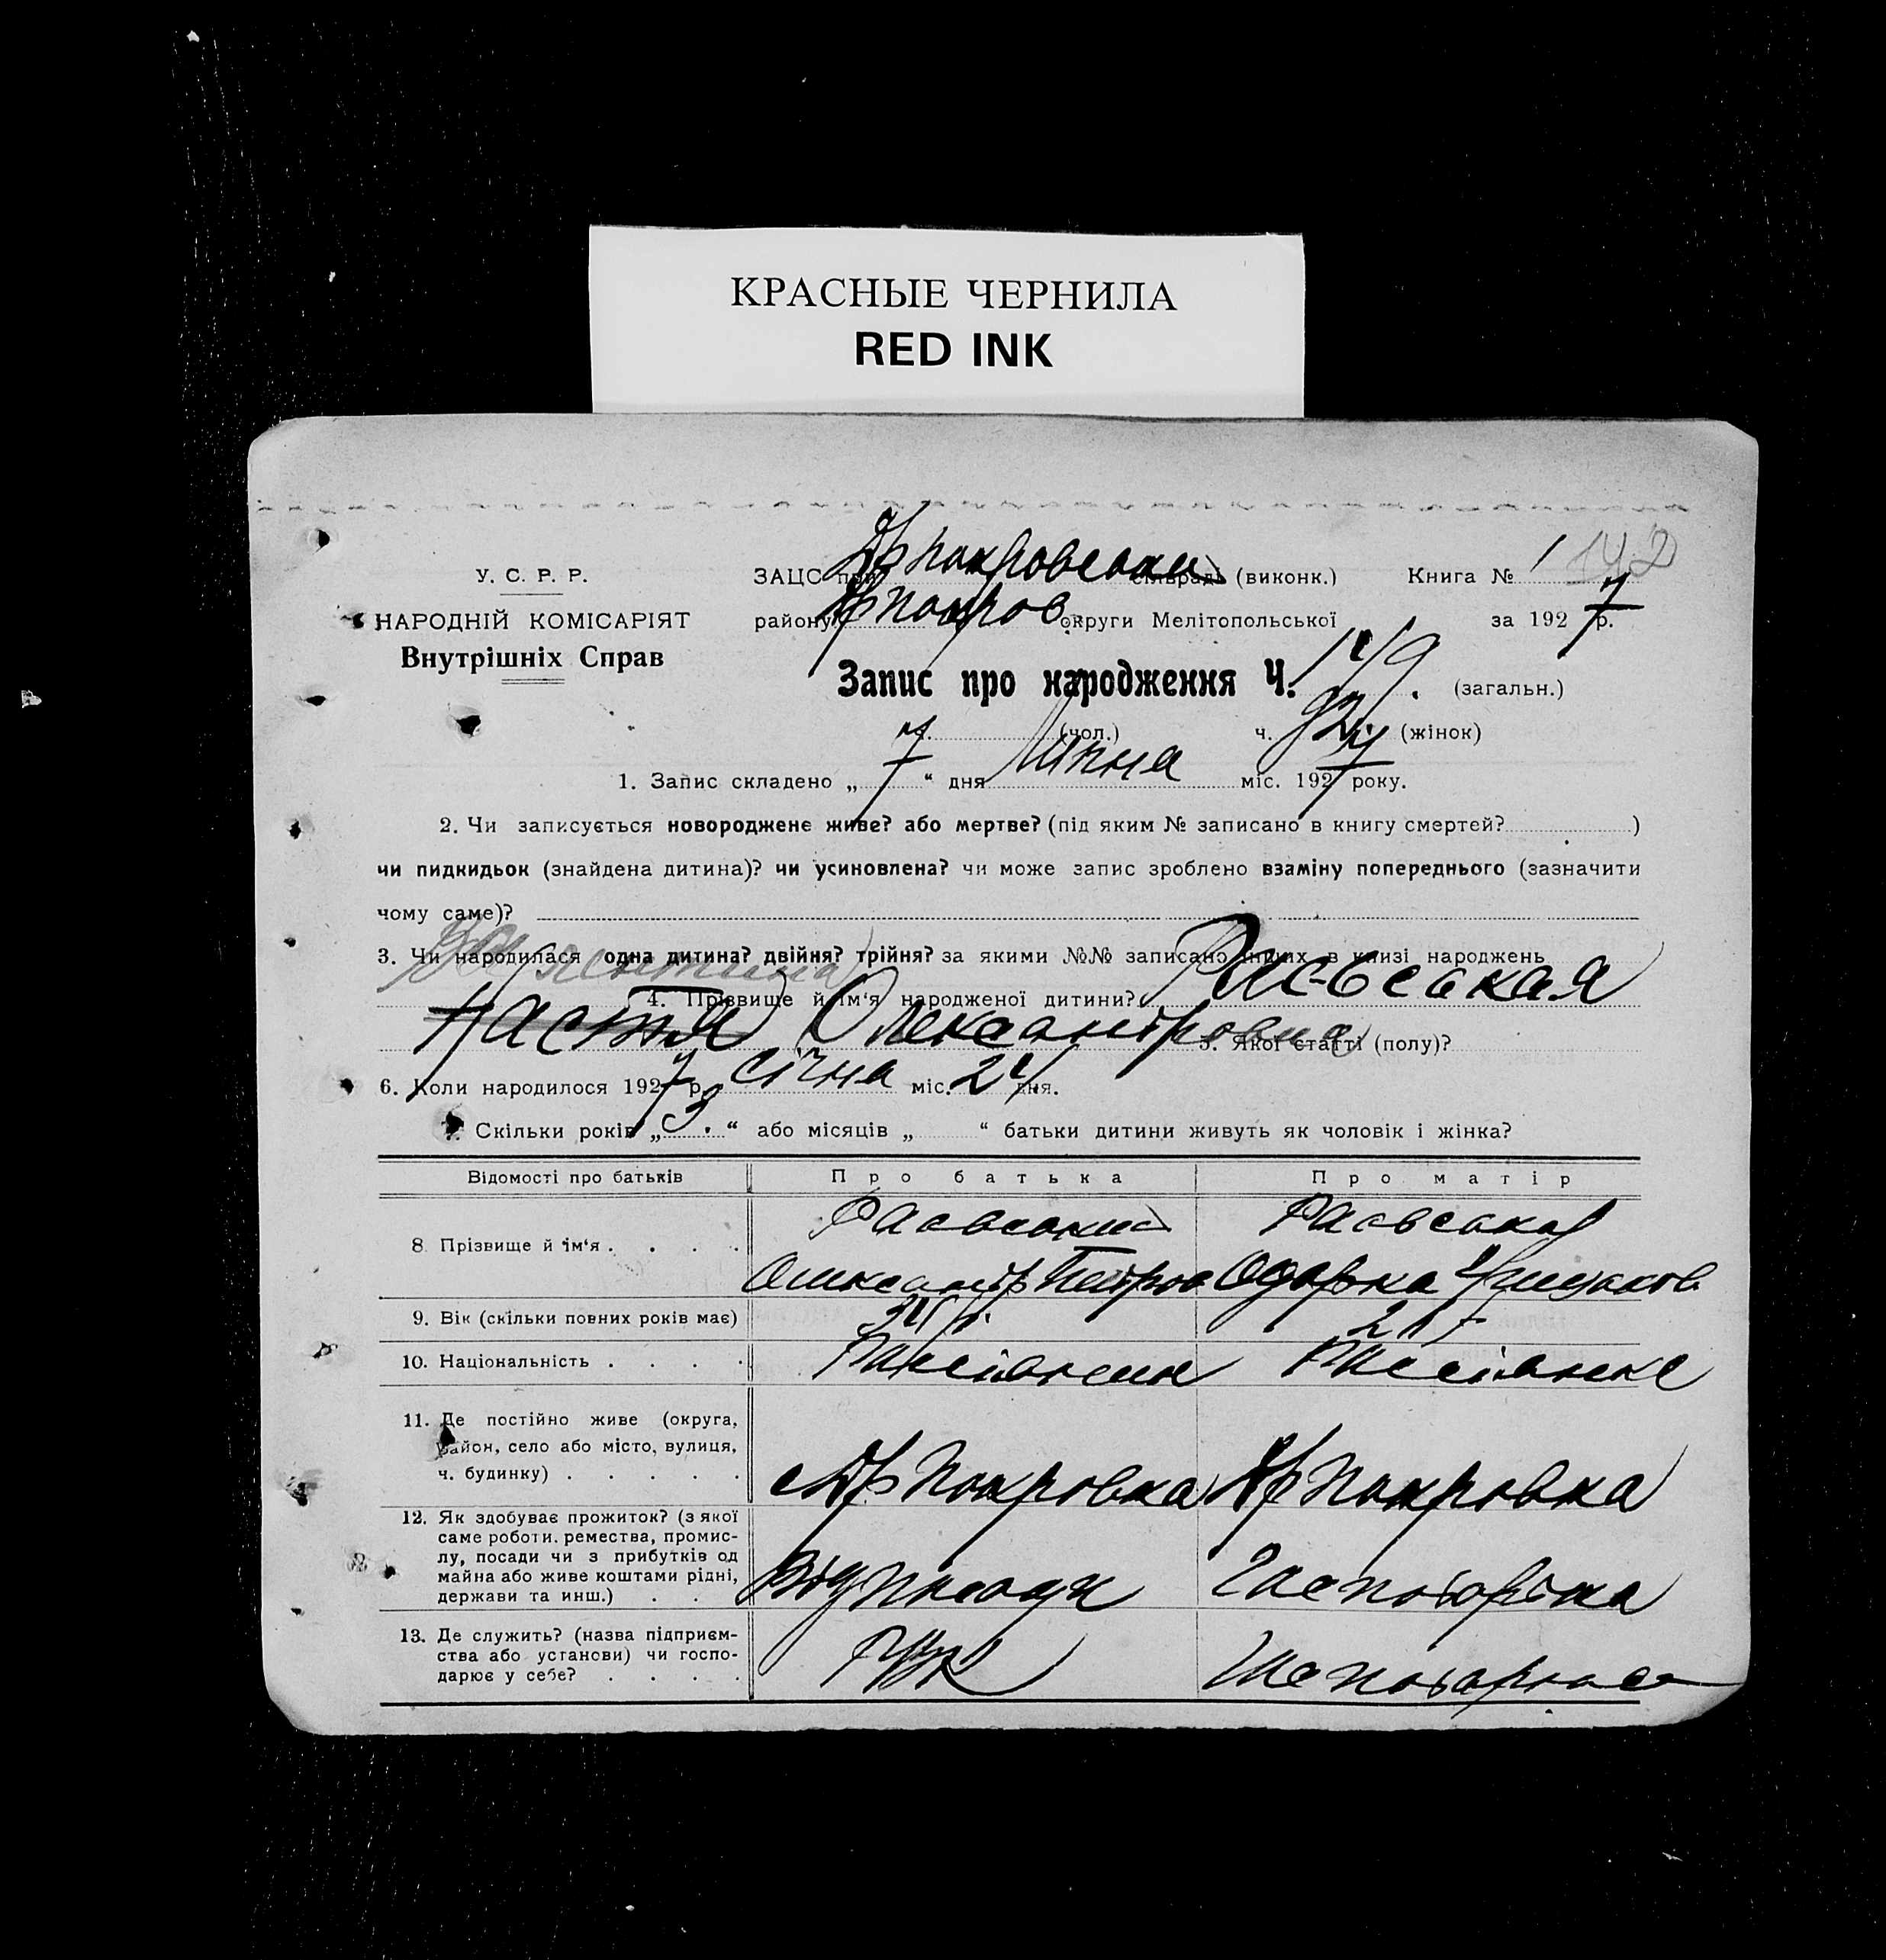 КРАСНЫЕ ЧЕРНИЛА
RED INK
У. С. Р. Р.
НАРОДНІЙ КОМІСАРІЯТ
Внутрішніх Справ
ЗАЦС при сільраді (виконк.)
району округи Мелітопольської
Книга № 1 142
за 1927 р.
Запис про народження Ч. (загальн.)
ч. (чол.) ч. (жінок)
1. Запис складено „7“ дня міс. 1927 року.
2. Чи записується новороджене живе? або мертве? (під яким № записано в книгу смертей? )
чи пидкидьок (знайдена дитина)? чи усиновлена? чи може запис зроблено взаміну попереднього (зазначити
чому саме)?
3. Чи народилася одна дитина? двійня? трійня? за якими №№ записано инших в книзі народжень
Валентина
4. Прізвище й ім‘я народженої дитини? Раєвская
Настя Олександровна 5. Якої статті (полу)?
6. Коли народилося 1927 р. січня міс. 24 дня.
7. Скільки років „3.“ або місяців „ “ батьки дитини живуть як чоловік і жінка?
Відомості про батьків Про батька Про матір
8. Прізвище й ім‘я . . . . Раєвський Раєвська
Олександр Петров Одарка
9. Вік (скільки повних років має) 21
10. Національність . . . .
11. Де постійно живе (округа,
район, село або місто, вулиця,
ч. будинку) . . . . . Покровка Покровка
12. Як здобуває прожиток? (з якої
саме роботи, ремества, промис-
лу, посади чи з прибутків од
майна або живе коштами рідні,
держави та инш.) . . . від посади Господарка
13. Де служить? (назва підприєм-
ства або установи) чи госпо-
дарює у себе? . . . .